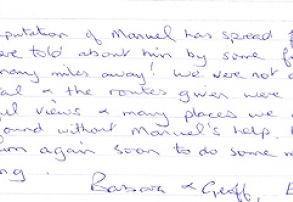 putation of Manuel has spread f
ere told about him by some f
many miles away! We were not d
al & the routes given were
ul views & many places we
ound without Manuel's help.
urn again soon to do some m
ing.
Barbara & Geoff, E